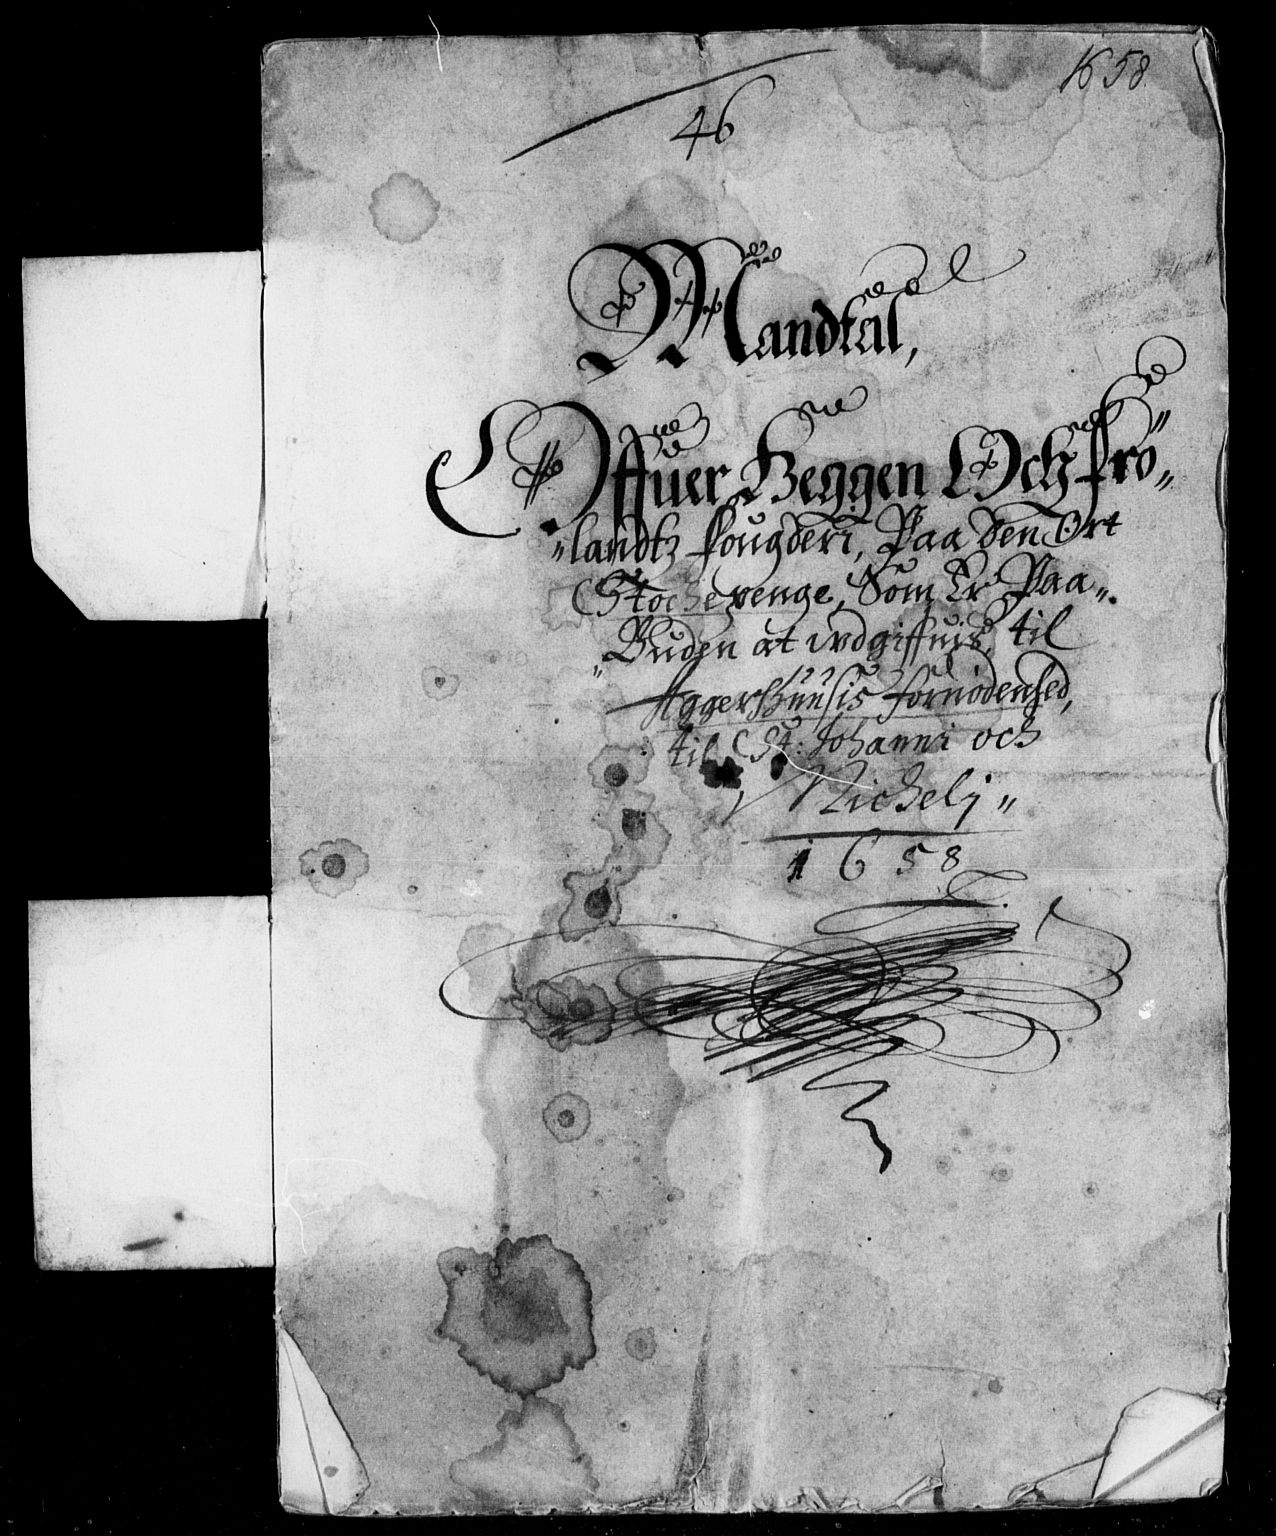 1658
46
Mandtal,
Offuer Heggen Och frö„
„landtz fougderi, Paa den Ort
Stochepenge, Som Er Paa„
„Buden at wdgiffuis, til
Aggershuusis fornødenhed,
til St: Johanni och
Michelj„
1658